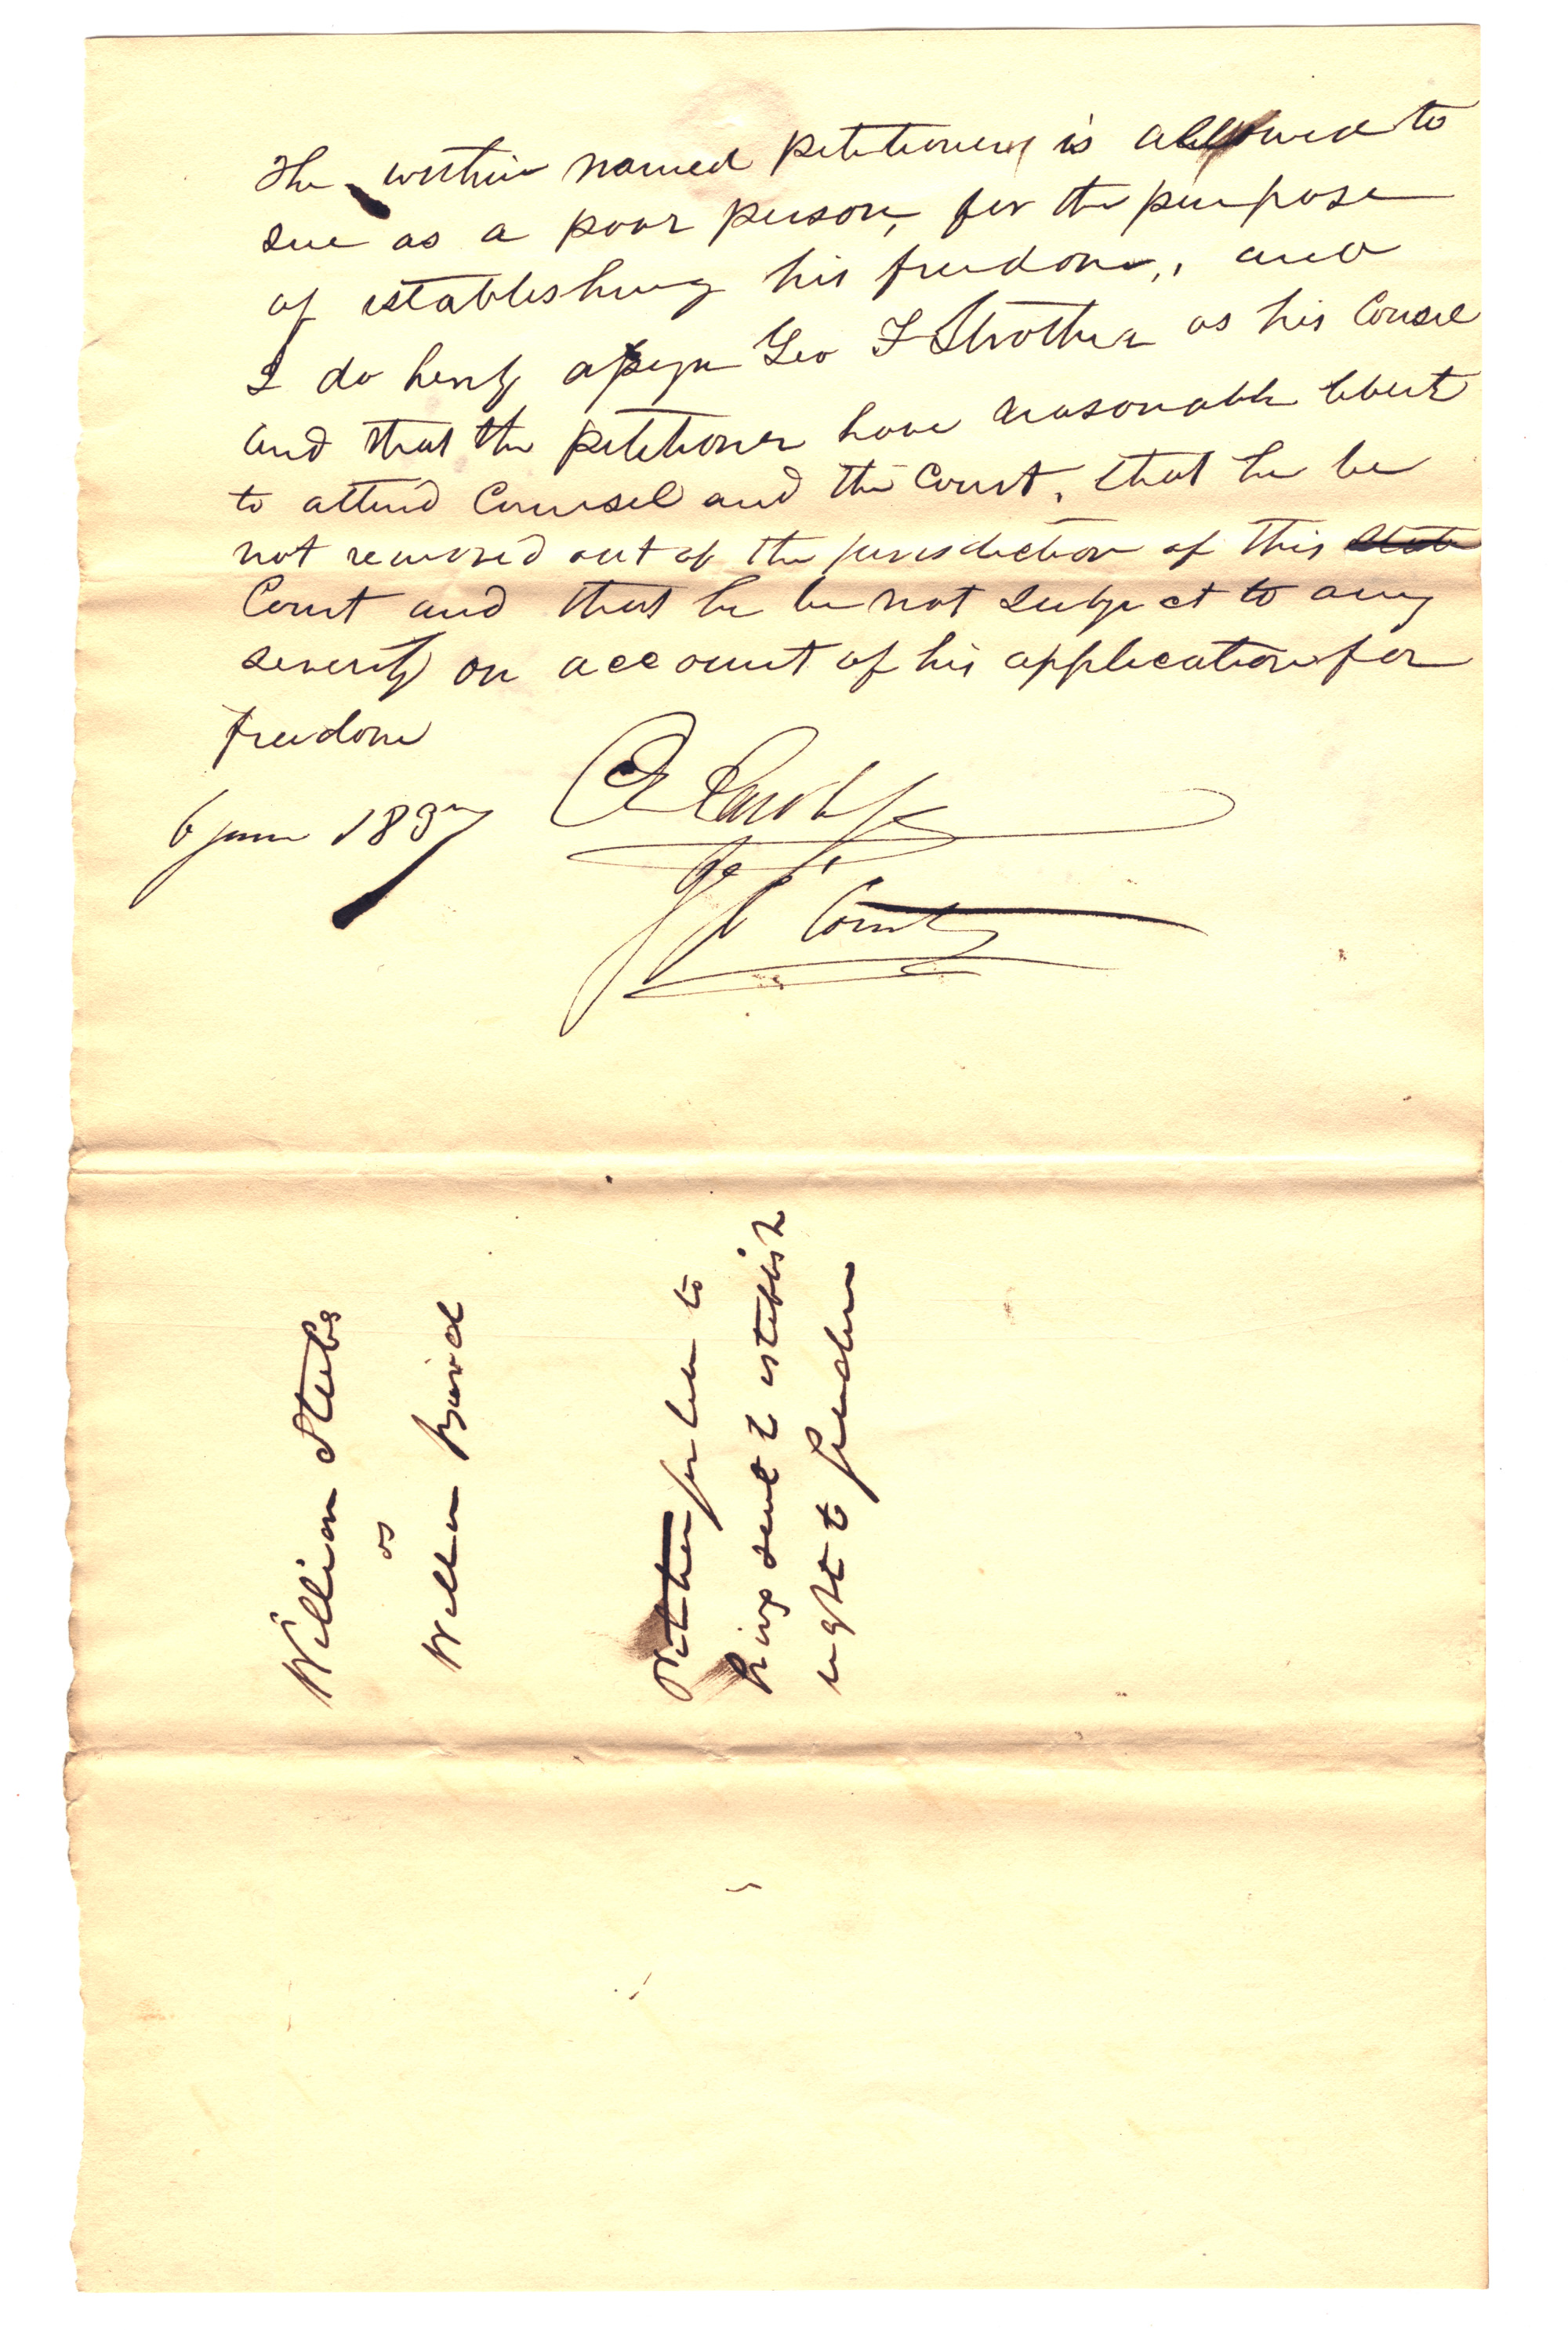 The within named petitioner is allowed to
sue as a poor person, for the purpose
of establishing his freedom, and
I do herby asign Geo F Strother as his Consel
and that the petitioner have reasonable liberty
to attend Counsel and the Court, that he be
not removed out of the jurisdiction of this State
Court and that he be not subject to any
severity on account of his application for
freedom
6 June 183
County
William Stubs
vs
Baird
Petition for leave to
bring suit to establish
right to freedom